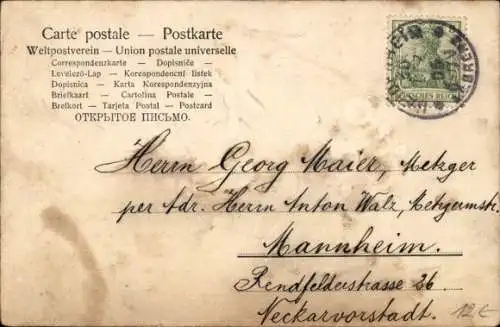 Carte postale — Postkarte
Weltpostverein – Union postale universelle
Correspondenzkarte — Dopisnice
Levelező-Lap – Korespondencní listek
Dopisnica – Karta Korespondenzyjna
Briefkaart – Cartolina Postale –
Brefkort – Tarjeta Postal – Postcard
ОТКРЫТОЕ ПИСЬМО.
DEUTSCHES REICH
Herrn Georg Maier, Metzger
per Adr. Herrn Anton Walz, Metzgermstr.
Mannheim.
Neckarvorstadt.
12€